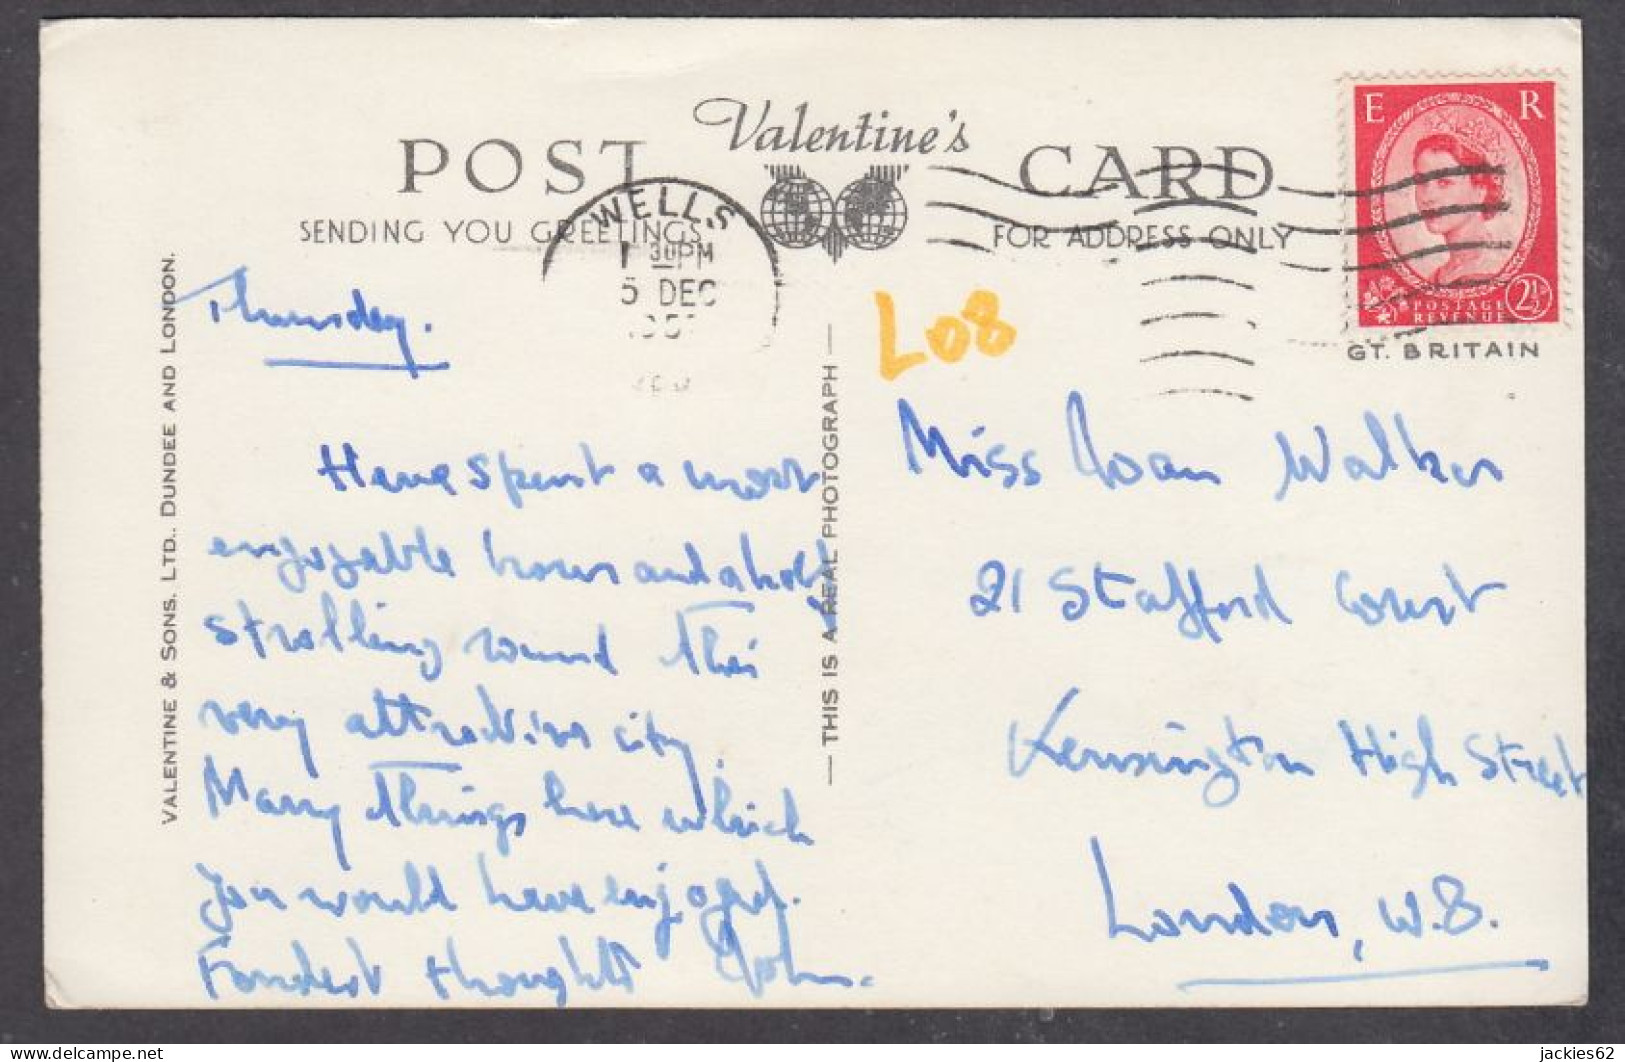 Valentine's
POST CARD
SENDING YOU GREETINGS
FOR ADDRESS ONLY
WELLS
30PM
5 DEC
E R
POSTAGE
REVENUE
2½D
GT. BRITAIN
L08
VALENTINE & SONS. LTD., DUNDEE AND LONDON.
THIS IS A REAL PHOTOGRAPH
Thursday.
Have spent a most
enjoyable hour and a half
strolling round this
very attractive city.
Many things here which
you would have enjoyed.
Fondest thoughts John.
Miss Joan Walker
21 Stafford Court
Kensington High Street
London, W.8.
jackies62
delcampe.net